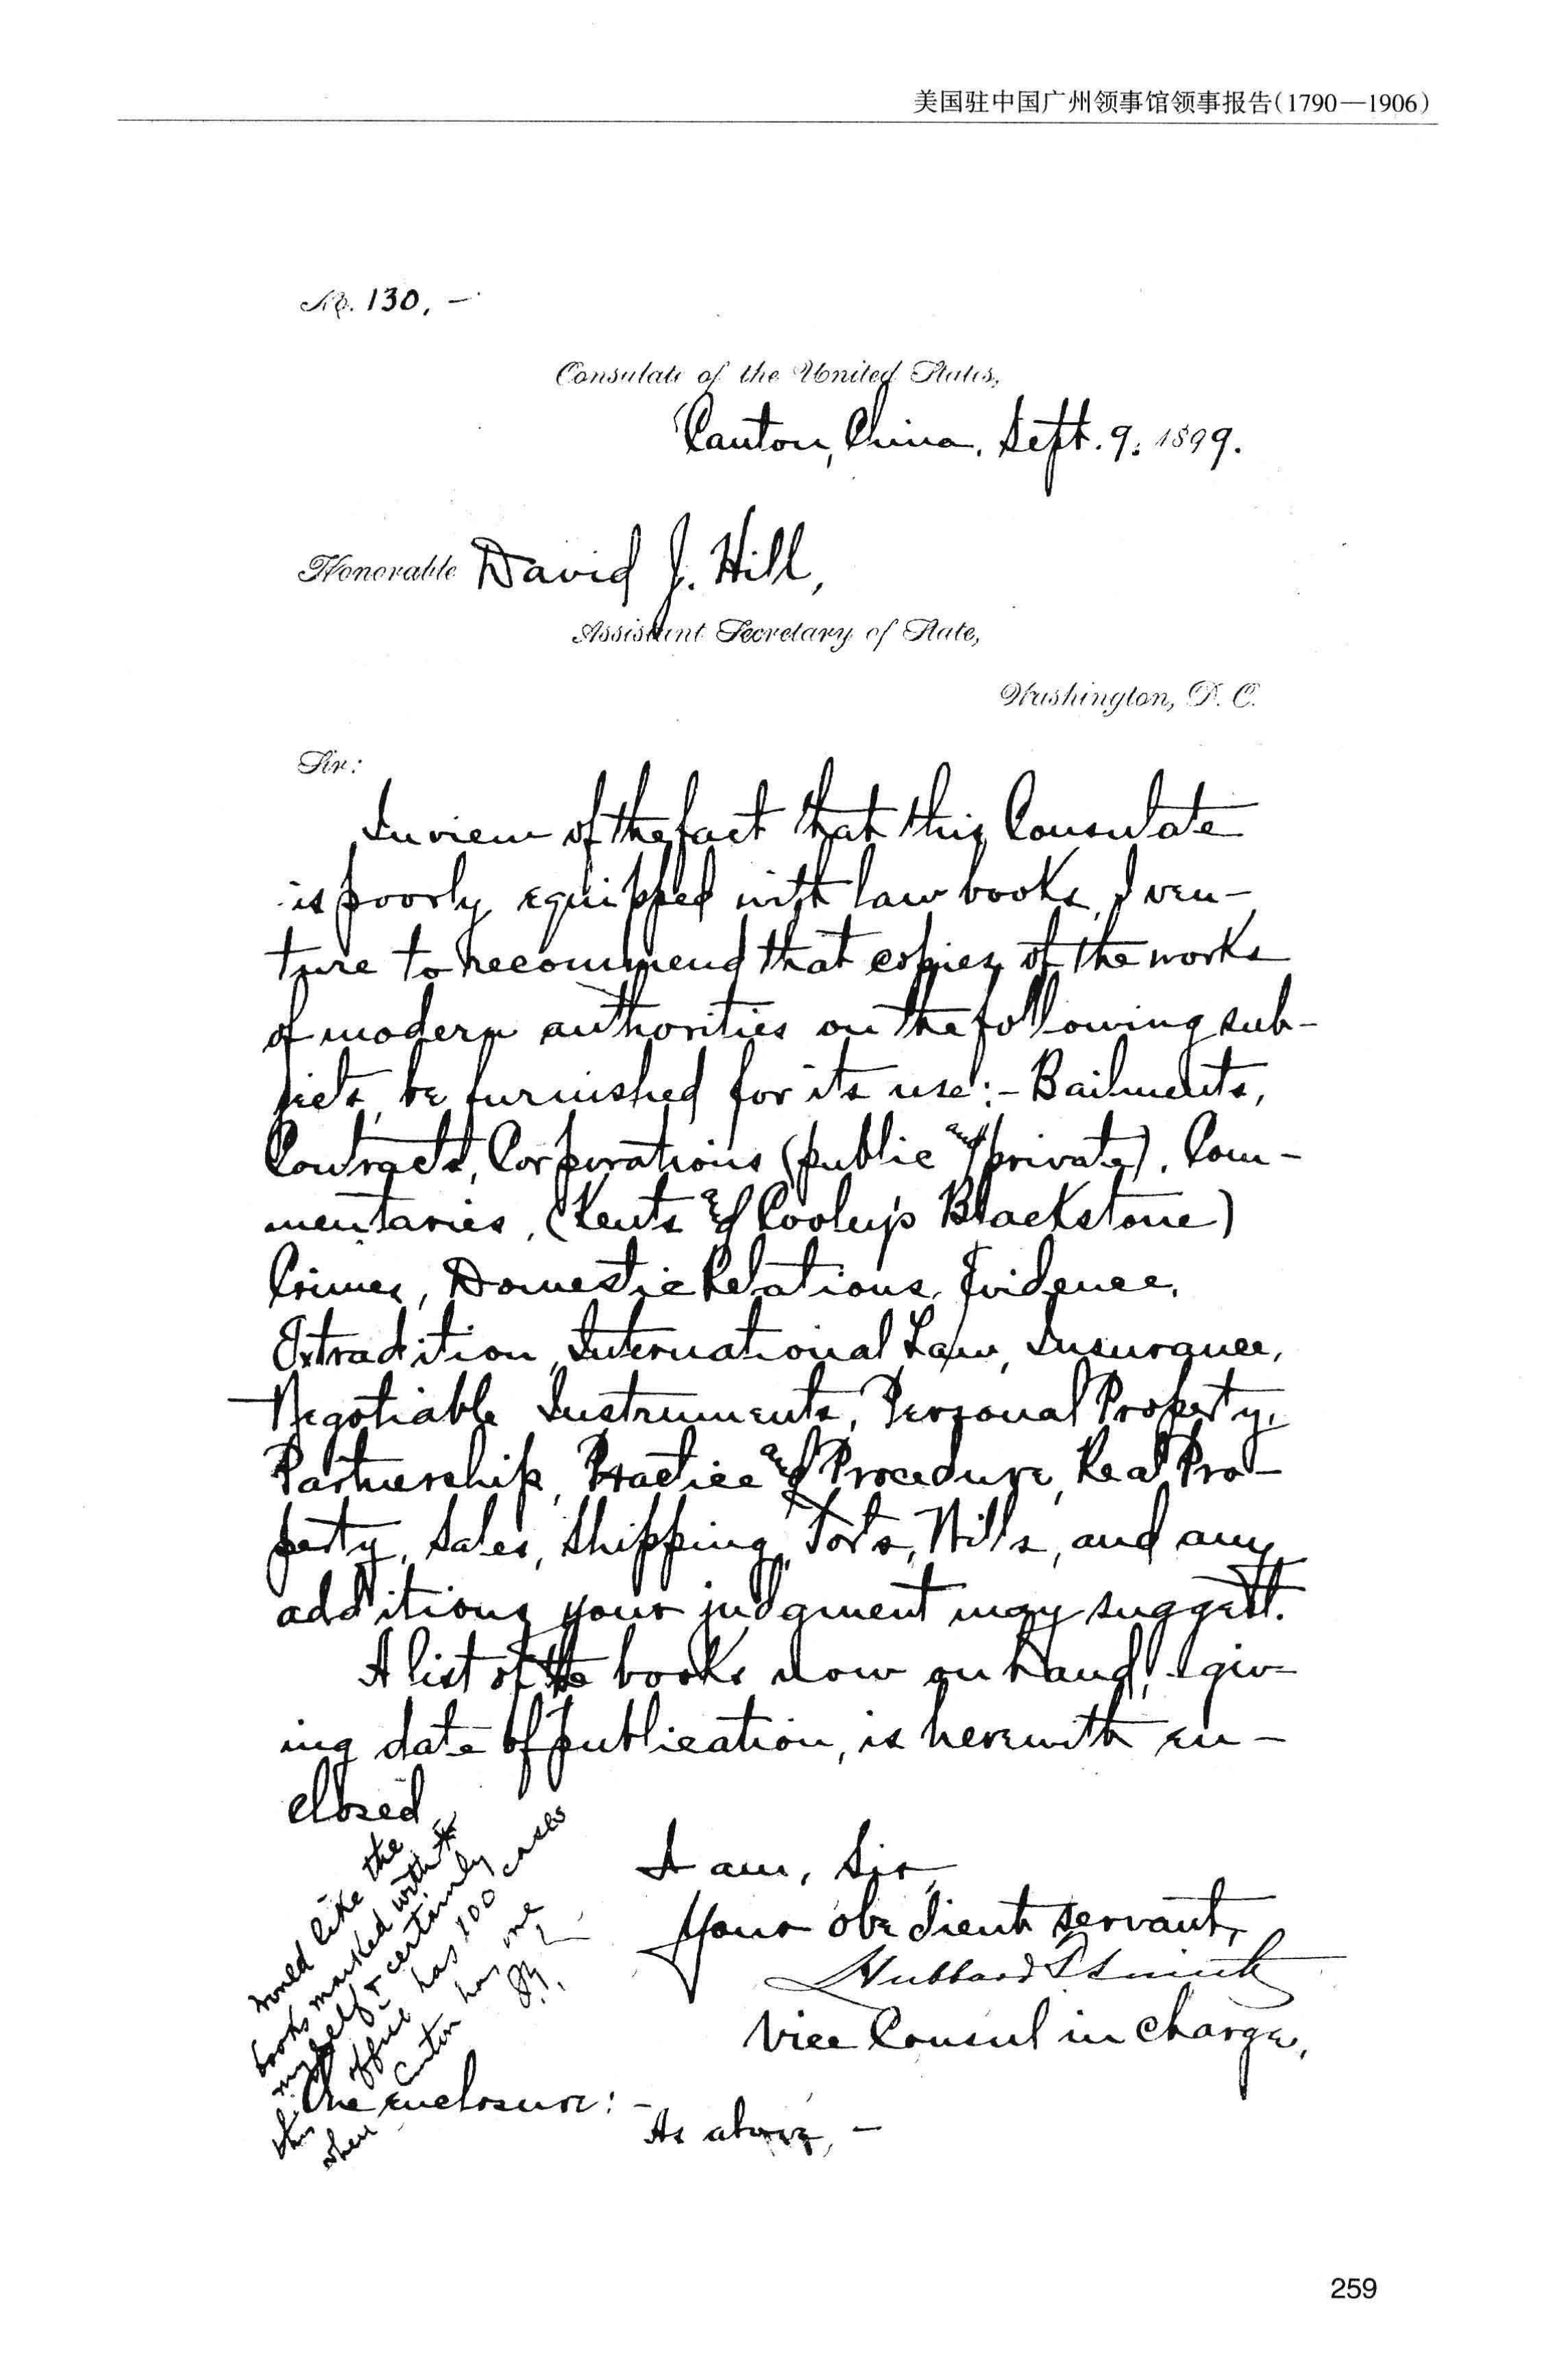 美国驻中国广州领事馆领事报告(1790—1906)
No. 130, –
Consulate of the United States,
Canton, China, Sept. 9. 1899.
Honorable David J. Hill,
Assistant Secretary of State,
Washington, D. C.
Sir:
In view of the fact that this Consulate
is poorly equipped with law books, I ven-
ture to recommend that copies of the works
of modern authorities on the following sub-
jects, be furnished for its use:- Bailments,
Contracts, Corporations (public and private), Com-
mentaries, (Kents and Cooley's Blackstone)
Crimes, Domestic Relations, Evidence,
Extradition, International Law, Insurance,
Negotiable Instruments, Personal Property,
Partnership, Practice and Procedure, Real Pro-
perty, Sales, Shipping, Torts, Wills, and any
additions your judgment may suggest.
A list of the books now on hand, giv-
ing date of publication, is herewith en-
closed.
I am, Sir,
Your obedient servant,
Hubbard T. Smith
Vice Consul in charge.
would like the
books marked with *
myself & certainly
this office has 100 cases
when Canton has one
One enclosure: –
As above, –
259